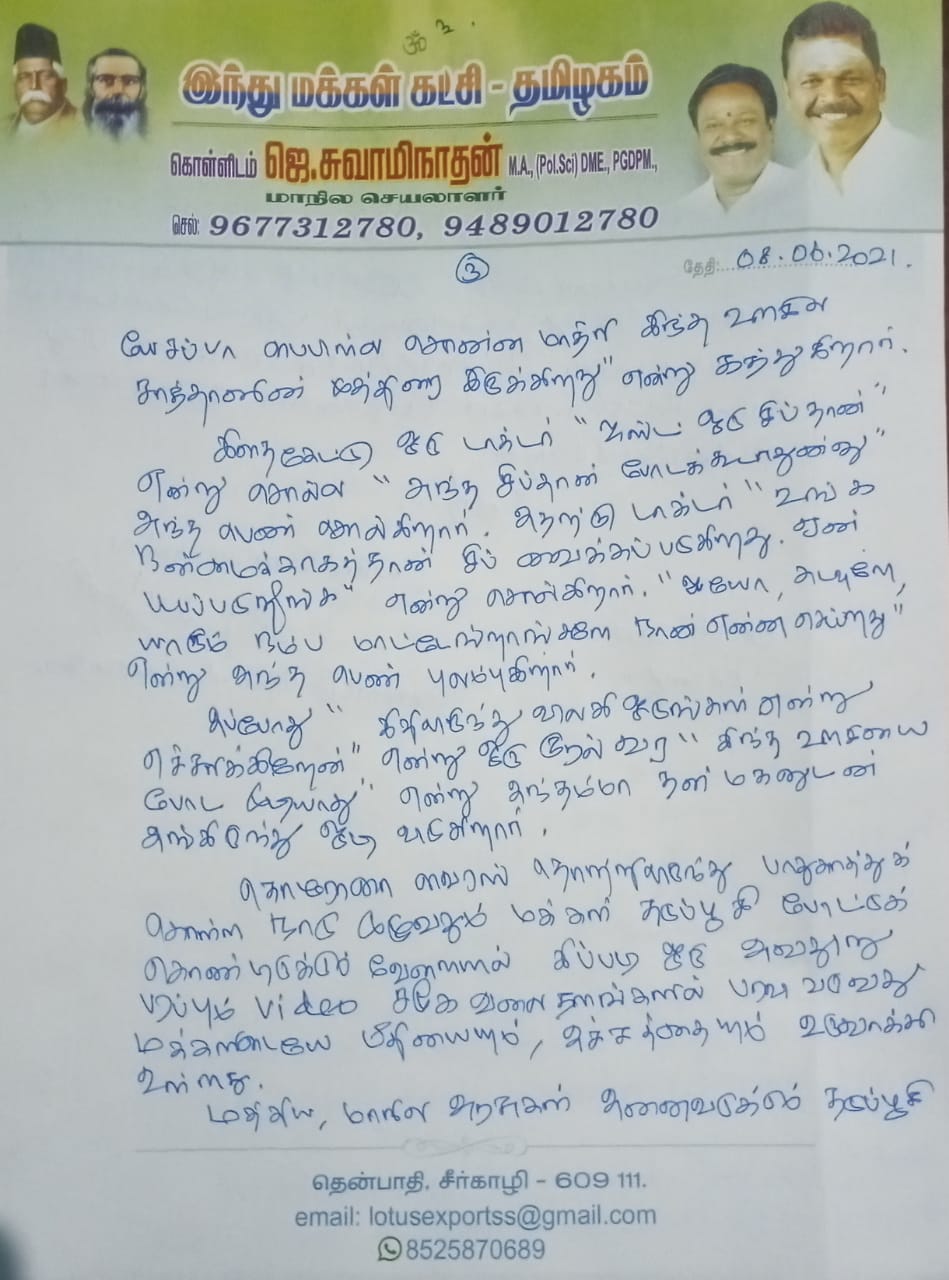 ௐ
இந்து மக்கள் கட்சி - தமிழகம்
கொள்ளிடம் ஜெ.சுவாமிநாதன் M.A., (Pol.Sci) DME., PGDPM.,
மாநில செயலாளர்
செல்: 9677312780, 9489012780
3
தேதி: 08.06.2021.
யேசப்பா பைபிள்ல சொன்ன மாதிரி இந்த ஊசில
சாத்தானின் முத்திரை இருக்கிறது" என்று கத்துகிறார்.
இதைகேட்டு ஒரு டாக்டர் "ஜஸ்ட் ஒரு சிப் தான்"
என்று சொல்ல "அந்த சிப்தான் போடக்கூடாதுண்னு"
அந்த பெண் சொல்கிறார். அதற்கு டாக்டர் "உங்க
நன்மைக்காகத்தான் சிப் வைக்கப்படுகிறது. ஏன்
பயப்படுறீங்க" என்று சொல்கிறார். "ஐயோ, கடவுளே,
யாரும் நம்ப மாட்டேன்றாங்களே நான் என்ன செய்றது"
என்று அந்த பெண் புலம்புகிறார்.
அப்போது "இதிலிருந்து விலகி ஓடுங்கள் என்று
எச்சரிக்கிறேன்" என்று ஒரு குரல் வர "இந்த ஊசியை
போட முடியாது" என்று அந்தம்மா தன் மகனுடன்
அங்கிருந்து ஓடி வருகிறார்.
கொரோனா வைரஸ் தொற்றிலிருந்து பாதுகாத்துக்
கொள்ள நாடு முழுவதும் மக்கள் தடுப்பூசி போட்டுக்
கொண்டிருக்கும் வேளையில் இப்படி ஒரு அவதூறு
பரப்பும் Video சமூக வலைதளங்களில் பரவி வருவது
மக்களிடையே பீதியையும், அச்சத்தையும் உருவாக்கி
உள்ளது.
மத்திய, மாநில அரசுகள் அனைவருக்கும் தடுப்பூசி
தென்பாதி, சீர்காழி - 609 111.
email: lotusexportss@gmail.com
8525870689